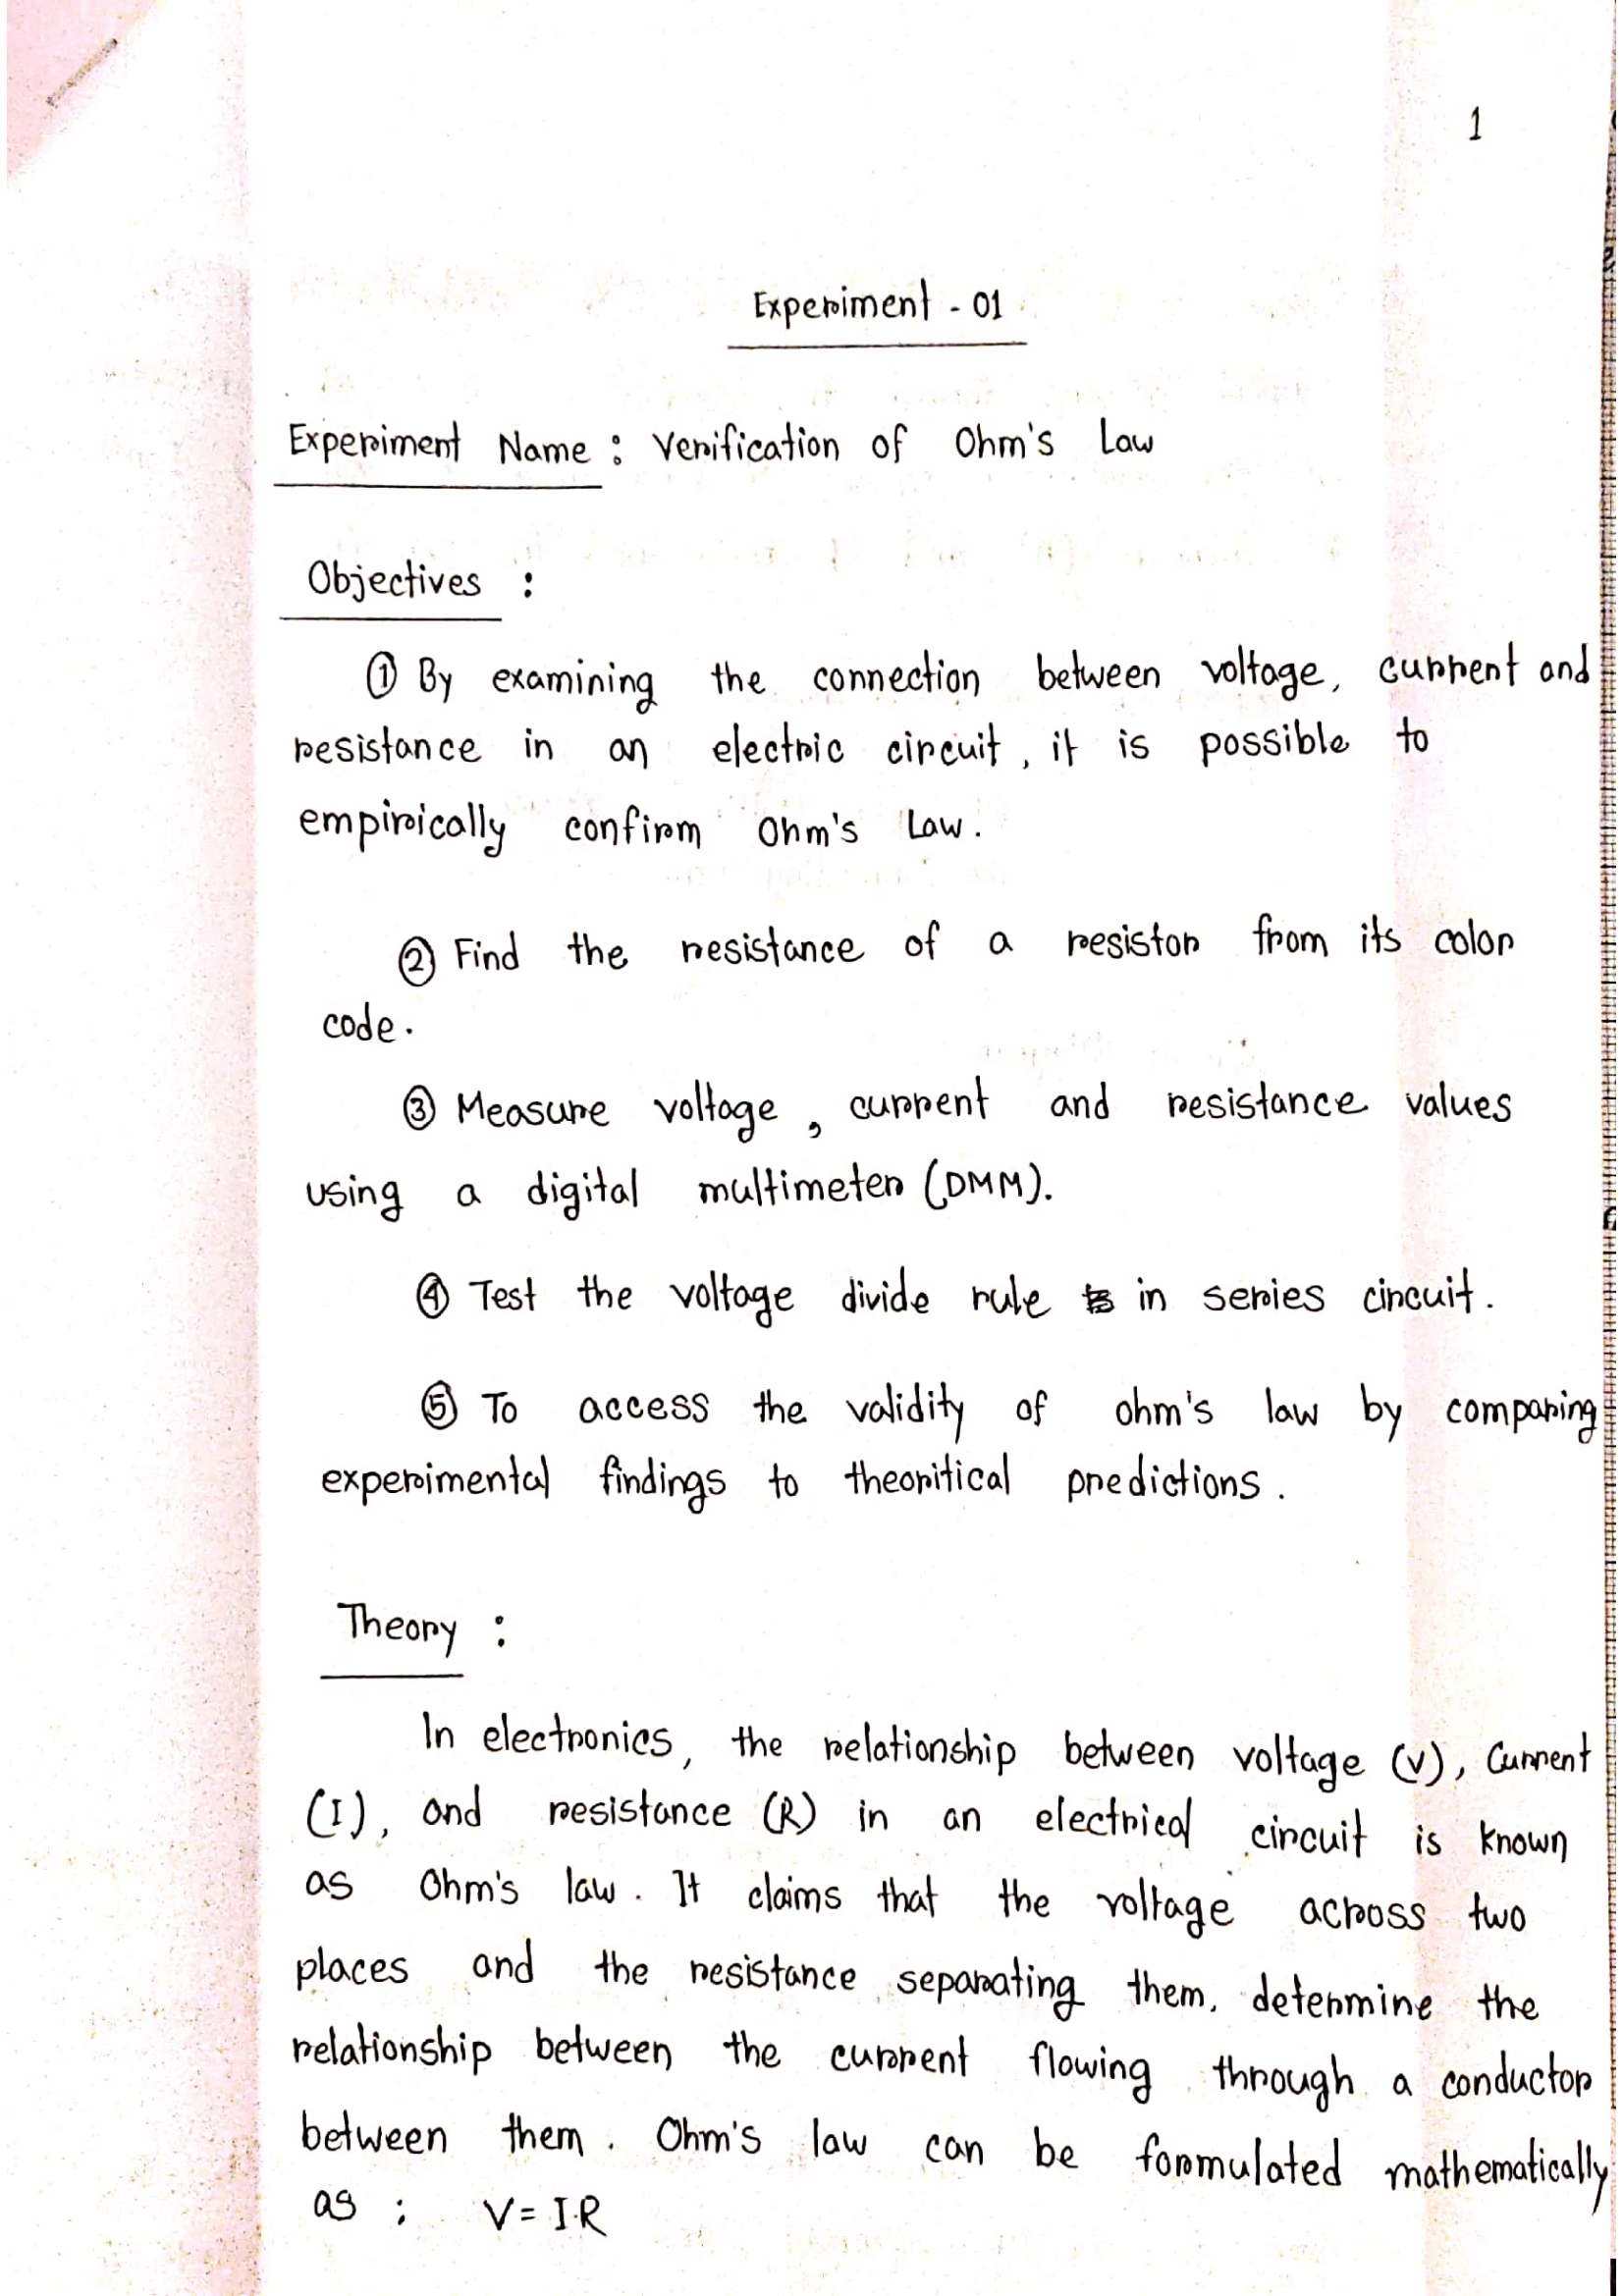 1
Experiment - 01
Experiment Name : Verification of Ohm's Law
Objectives :
① By examining the connection between voltage, current and
resistance in an electric circuit, it is possible to
empirically confirm Ohm's Law.
② Find the resistance of a resistor from its color
code.
③ Measure voltage, current and resistance values
using a digital multimeter (DMM).
④ Test the voltage divide rule in series circuit.
⑤ To access the validity of ohm's law by comparing
experimental findings to theoritical predictions.
Theory :
In electronics, the relationship between voltage (V), Current
(I), and resistance (R) in an electrical circuit is known
as Ohm's law. It claims that the voltage across two
places and the resistance separating them, determine the
relationship between the current flowing through a conductor
between them. Ohm's law can be formulated mathematically
as : V = I.R